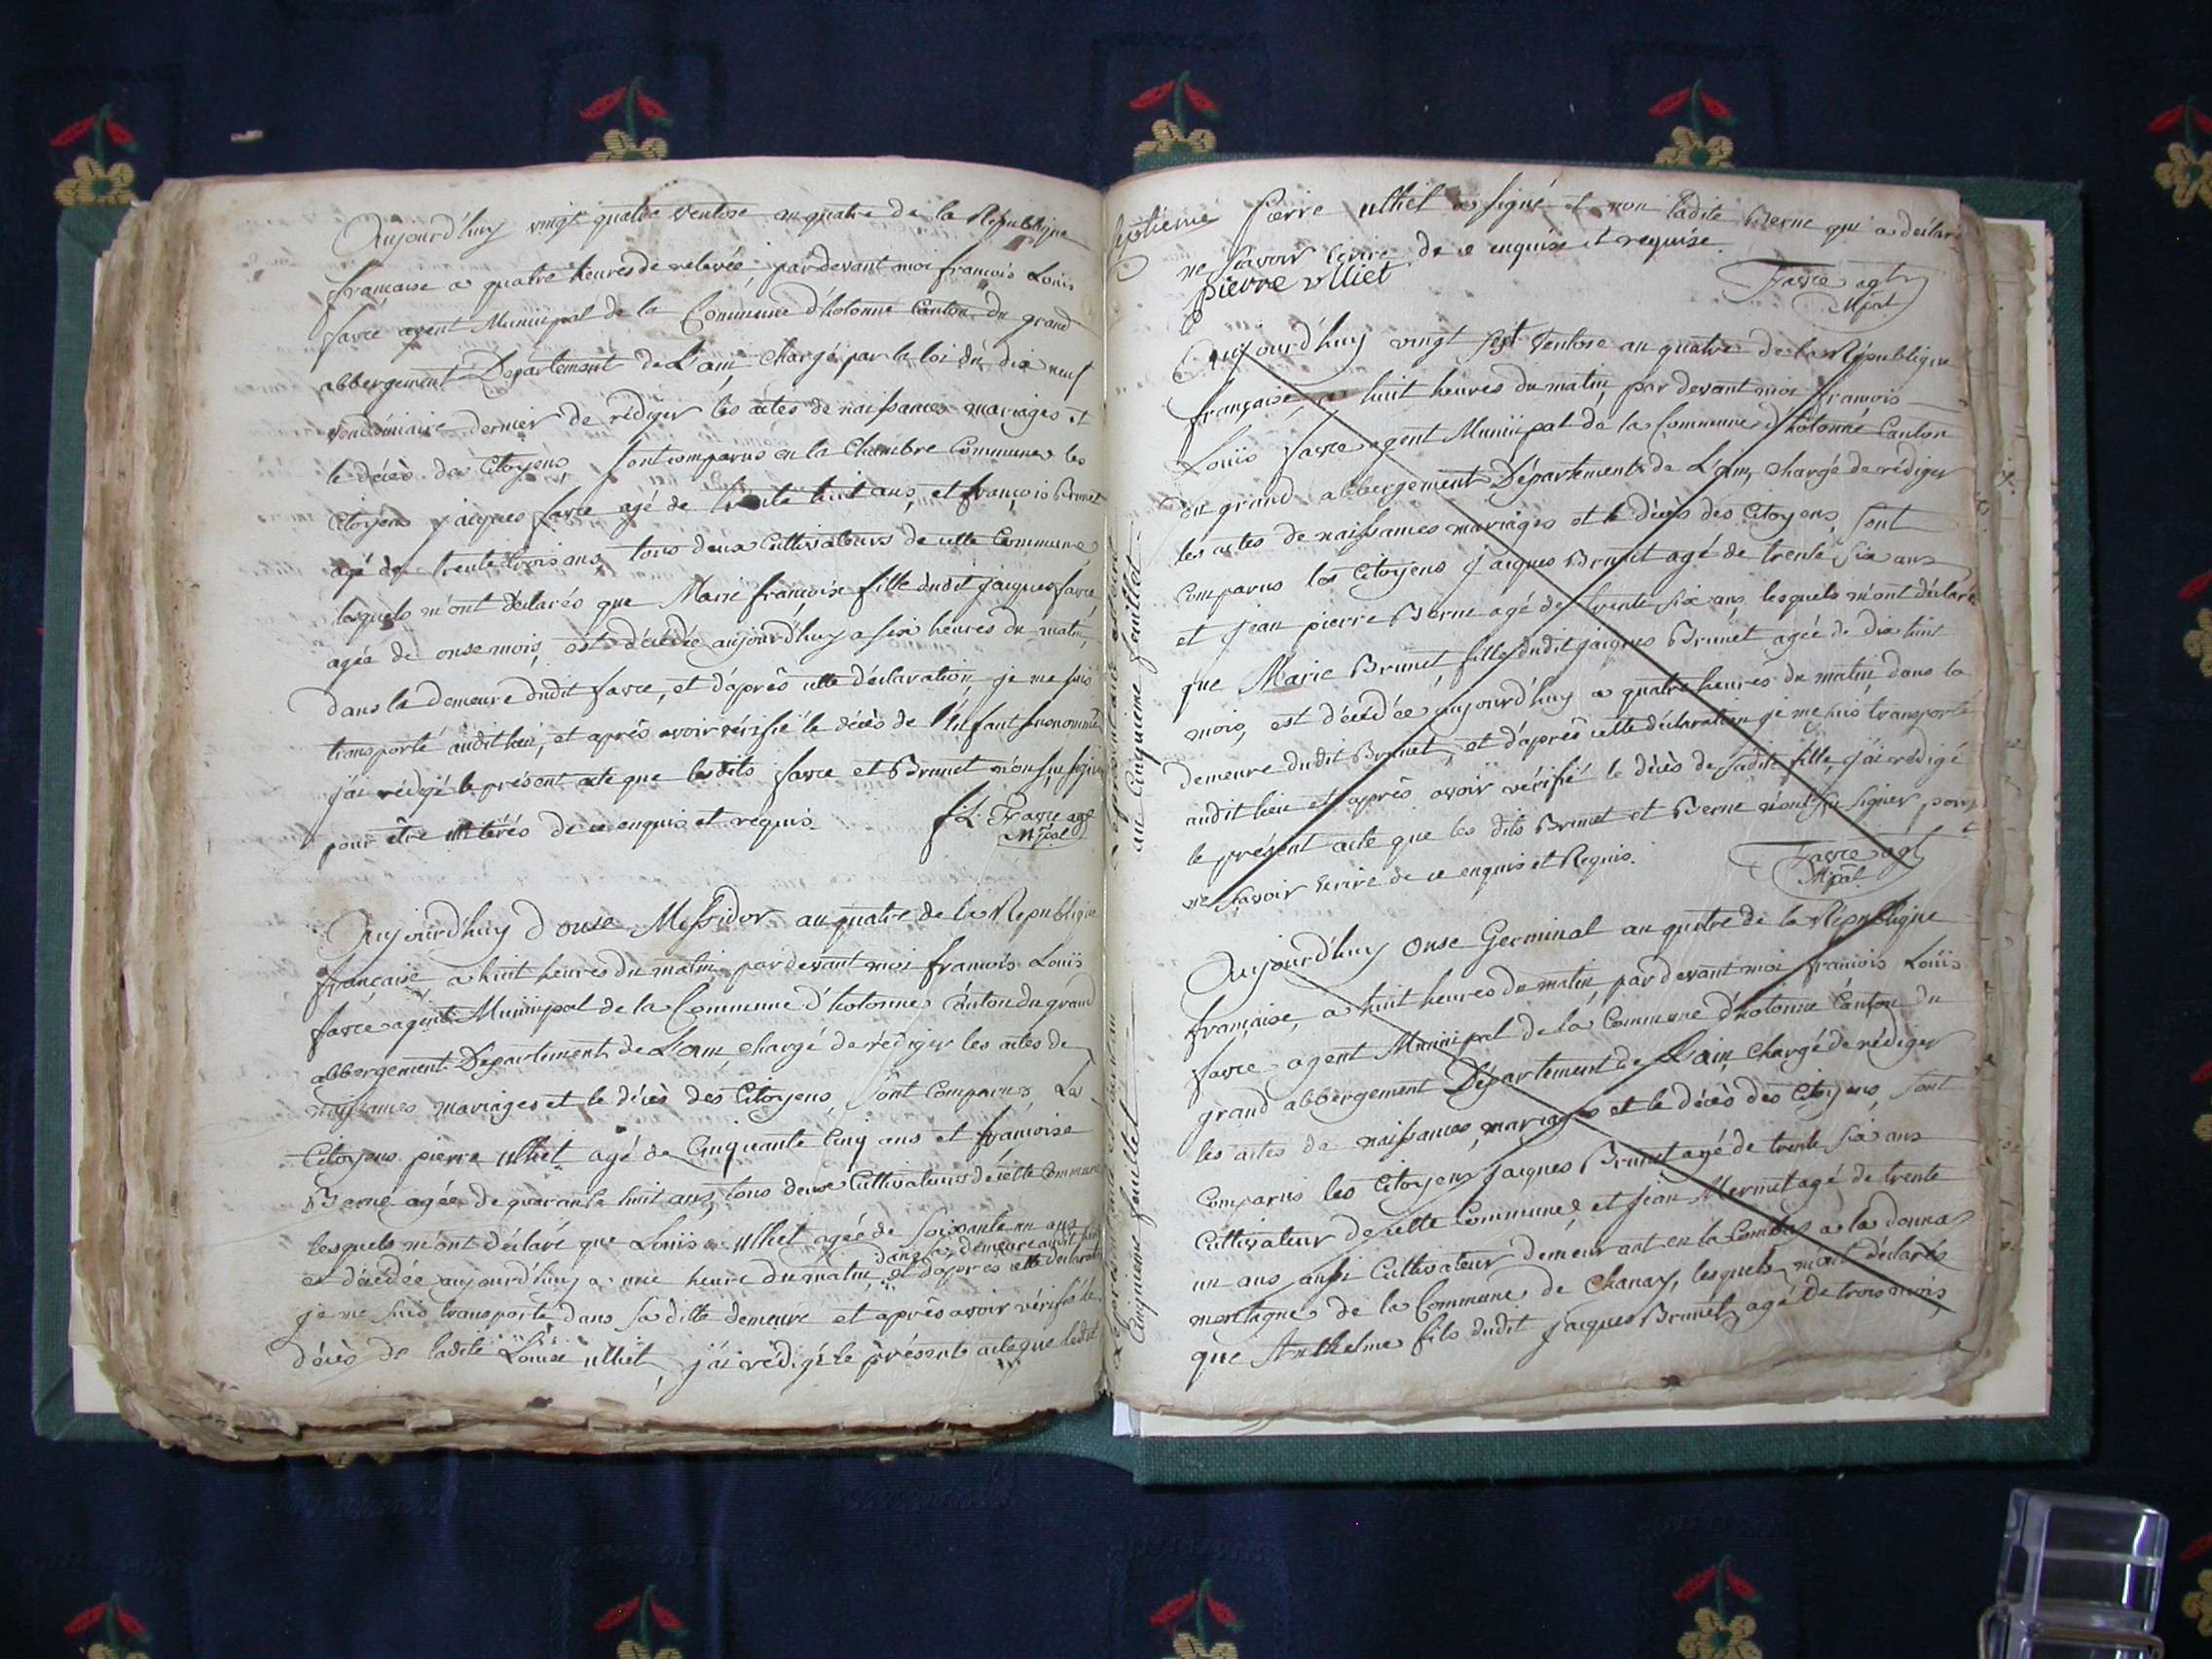 Aujourd'huy vingt quatre Ventose an quatre de la Republique
française a quatre heures de relevée, pardevant moi françois Louis
favre agent Municipal de la Commune d'hotonne Canton du grand
abbergement Département de L'ain, Chargé par la loi du dix neuf
vendémiaire dernier de rédiger les actes de naissances mariages et
le décès des Citoyens, sont comparus en la Chambre Commune les
Citoyens jaiques favre agé de trente huit ans, et françois Brunet
agé de trente trois ans, tous deux Cultivateurs de cette Commune
lesquels m'ont déclarés que Marie françoise fille dudit jaiques favre
agée de onse mois, est décédée aujourd'huy a six heures du matin,
dans la demeure dudit favre, et d'après cette déclaration, je me suis
transporté audit lieu, et après avoir vérifié le décès de l'Enfant susnommé
j'ai rédigé le présent acte que lesdits favre et Brunet n'ont su signer
pour être illitérés de ce enquis et requis.
fL. Favre agt
Mpal
Aujourd'huy douse Messidor an quatre de la Republique
française a huit heures du matin pardevant moi françois Louis
favre agent Municipal de la Commune d'hotonne Canton du grand
abbergement Département de L'ain Chargé de rédiger les actes de
naissances mariages et le décès des Citoyens, sont Comparus Les
Citoyens pierre ulliet agé de Cinquante Cinq ans et françoise
Berne agée de quarante huit ans, tous deux Cultivateurs de cette Commune
lesquels m'ont déclaré que Louise ulliet agée de soixante un ans
dans sa demeure audit lieu
est décédée aujourd'huy a une heure du matin, et d'après cette déclaration
je me suis transporté dans sa ditte demeure et après avoir vérifié le
décès de ladite Louise ulliet, j'ai rédigé le présent acte que ledit
Cinquieme feuillet
septieme
au Cinquieme feuillet
Pierre ulliet a signé et non ladite Berne qui a déclaré
ne scavoir Ecrire de ce enquise et requise.
pierre ulliet
Favre agt
Mpal
Aujourd'huy vingt sept Ventose an quatre de la République
française, a huit heures du matin, par devant moi françois
Louis favre agent Municipal de la Commune d'hotonne Canton
du grand abbergement Département de L'ain, chargé de rédiger
les actes de naissances mariages et le décès des Citoyens, sont
Comparus les Citoyens jaiques Brunet agé de trente six ans
et jean pierre Berne agé de trente six ans, lesquels m'ont déclaré
que Marie Brunet fille dudit jaiques Brunet agée de dix huit
mois, est décédée aujourd'huy a quatre heures du matin dans la
demeure dudit Brunet, et d'après cette déclaration je me suis transporté
audit lieu et après avoir vérifié le décès de sadite fille, j'ai rédigé
le présent acte que les dits Brunet et Berne n'ont su signer pour
ne scavoir Ecrire de ce enquis et Requis.
Favre agt
Mpal
Aujourd'huy onse Germinal an quatre de la République
française, a huit heures du matin pardevant moi françois Louis
favre agent Municipal de la Commune d'hotonne Canton du
grand abbergement Département de L'ain, Chargé de rédiger
les actes de naissances, mariages et le décès des Citoyens, sont
Comparus les Citoyens jaiques Brunet agé de trente six ans
Cultivateur de cette Commune, et jean Mermet agé de trente
un ans aussi Cultivateur demeurant en la Combe a la donna
montagne de la Commune de Chanay, lesquels m'ont déclarés
que Anthelme fils dudit jaiques Brunet, agé de trois mois